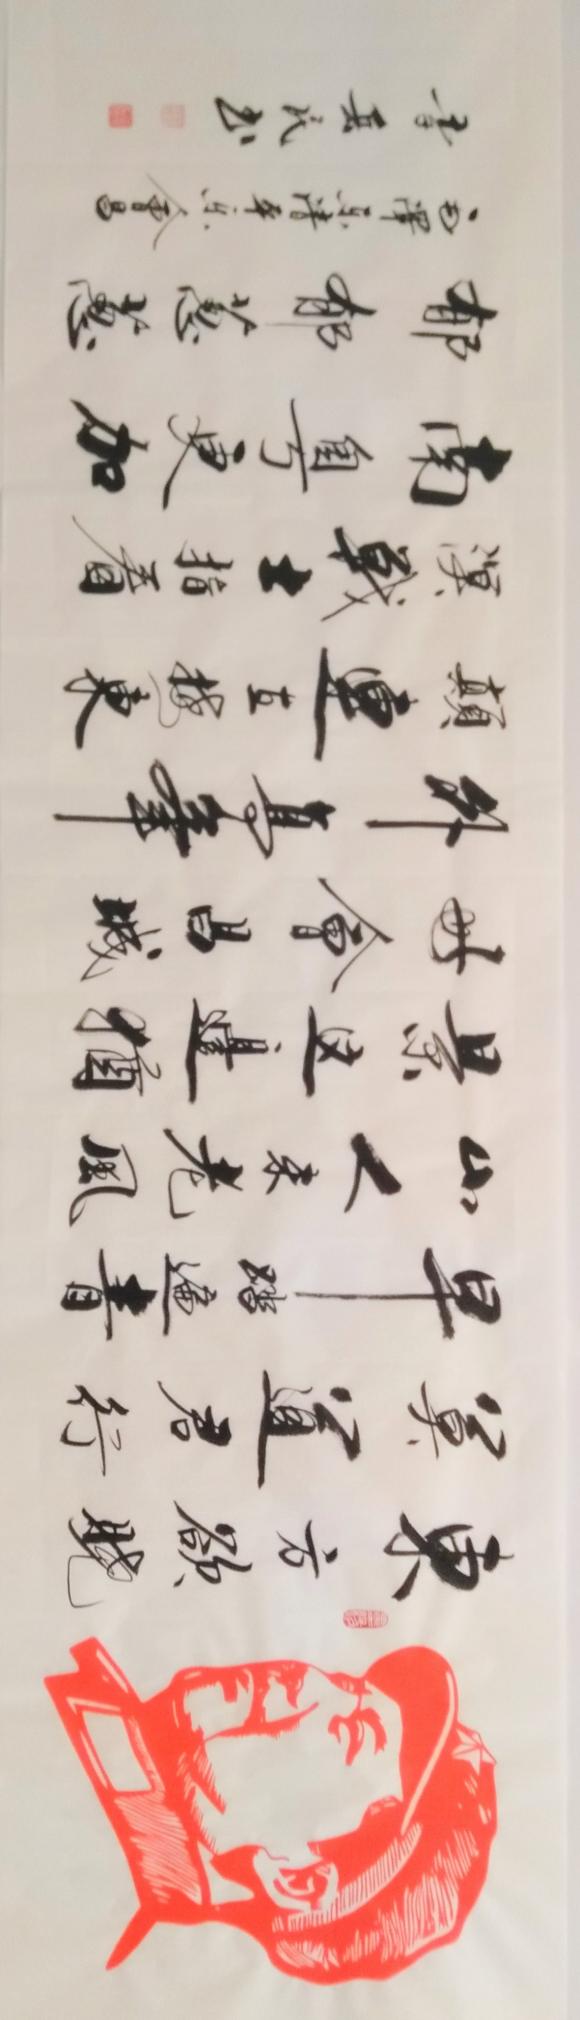 東方欲曉
莫道君行
早踏遍青
山人未老風
景这邊獨
好會昌城
外高峰
顛連直接東
溟戰士指看
南粤更加
郁郁葱葱
毛澤东清平乐會昌
民书